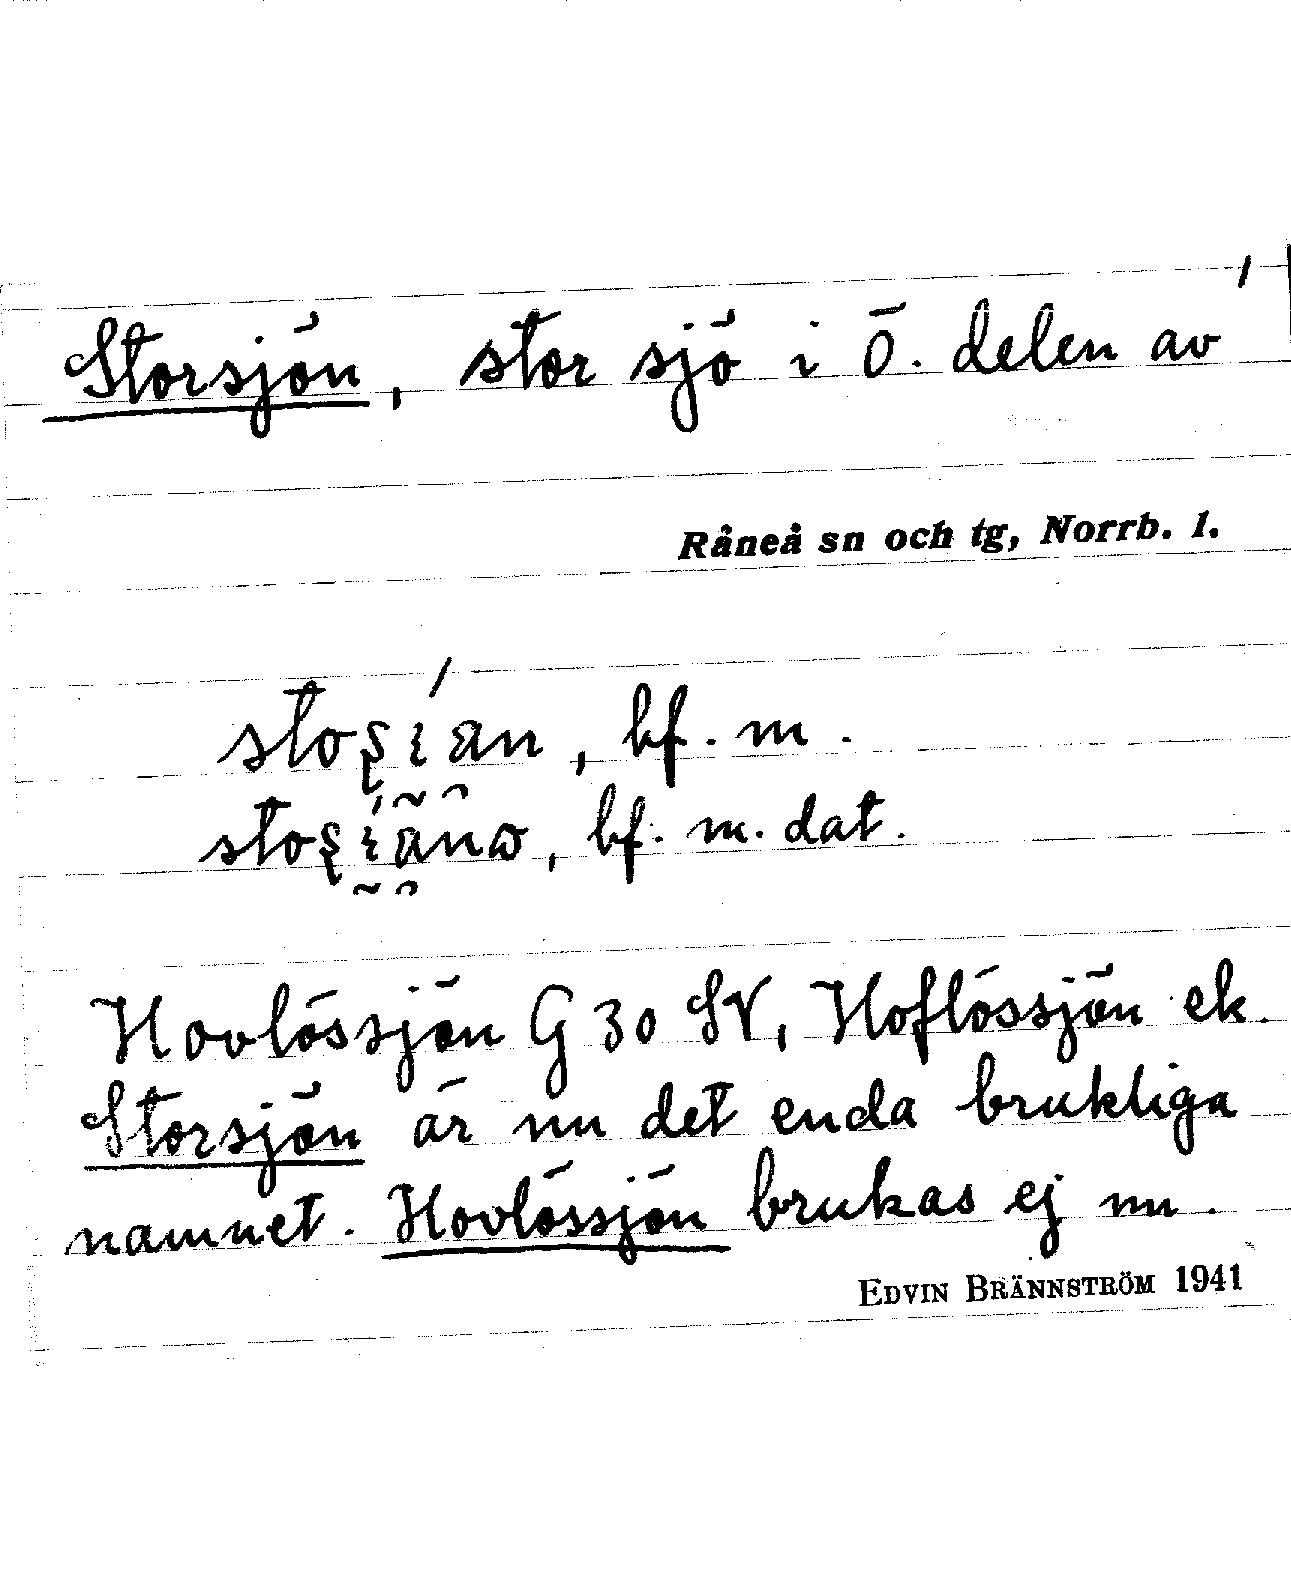 Storsjön, stor sjö i ö. delen av
Råneå sn och tg, Norrb. l.
bf. m.
bf. m. dat.
Hovlössjön G 30 SV, Hoflössjön ek.
Storsjön är nu det enda brukliga
namnet. Hovlössjön brukas ej nu.
EDVIN BRÄNNSTRÖM 1941